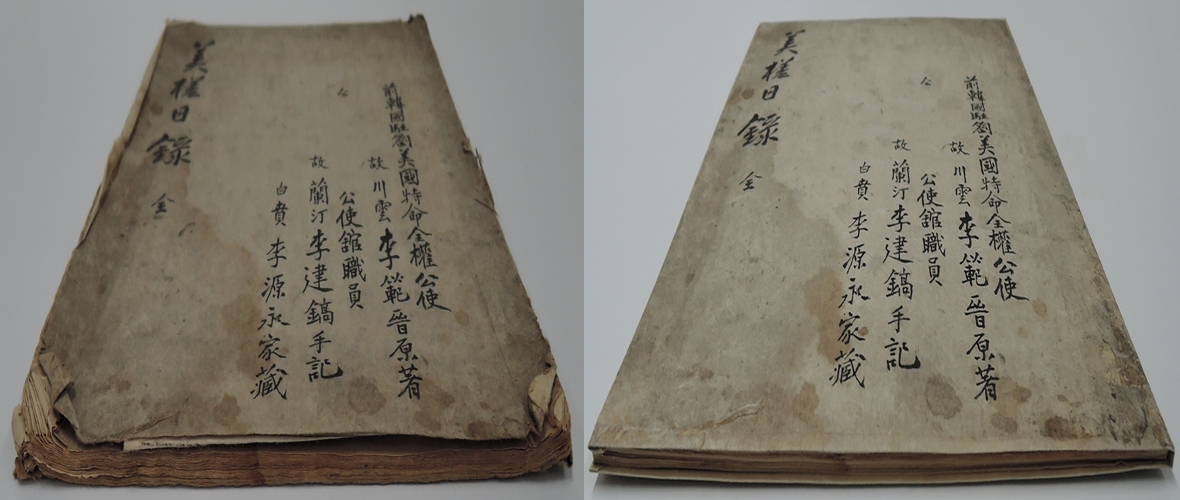 前韓國駐劄美國特命全權公使
故川雲李範晉原著
公使舘職員
故蘭汀李建鎬手記
白賁李源永家藏
美槎日錄 全
前韓國駐劄美國特命全權公使
故川雲李範晉原著
公使舘職員
故蘭汀李建鎬手記
白賁李源永家藏
美槎日錄 全